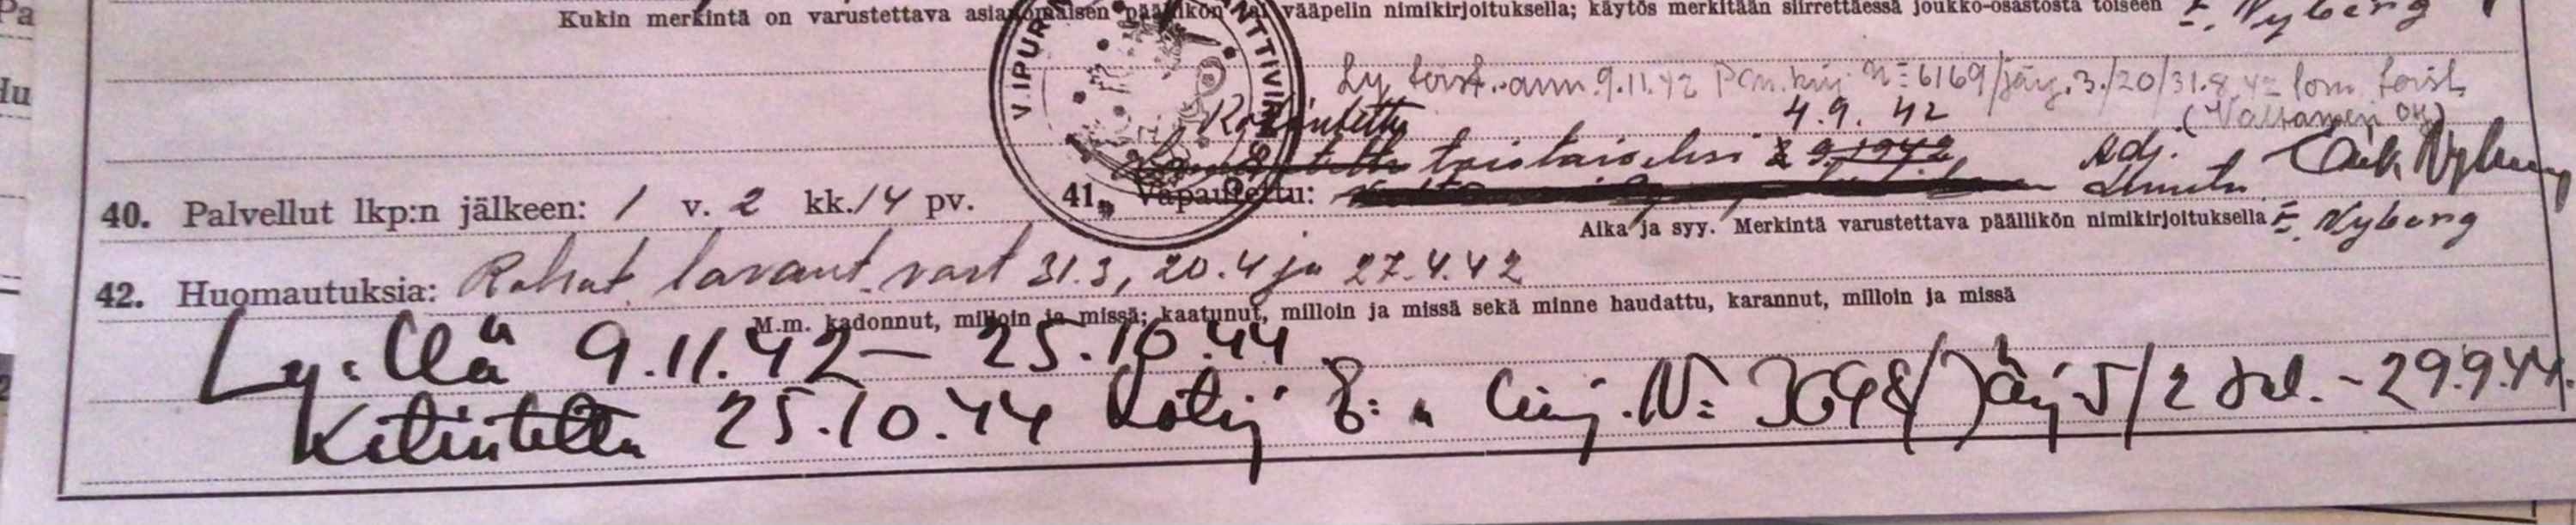 Pa
Kukin merkintä on varustettava asianomaisen päällikön tai vääpelin nimikirjoituksella; käytös merkitään siirrettäessä joukko-osastosta toiseen E. Nyberg
Hu
V.IPUR NTTIVIR
Ly toist. ann. 9.11.42 Pm. kirj. N:6169/Järj.3./20/31.8.42 lom. toist.
Kotiutettu 4.9. 42 (Valtameri Oy)
toistaiseksi 2 9.1942 Adj. Erik Nyberg
40. Palvellut lkp:n jälkeen: 1 v. 2 kk. 14 pv. 41. Vapautettu:
Aika ja syy. Merkintä varustettava päällikön nimikirjoituksella E. Nyberg
42. Huomautuksia: Rokot. lavant. vast 31.3, 20.4 ja 27.4.42
M.m. kadonnut, milloin ja missä; kaatunut, milloin ja missä sekä minne haudattu, karannut, milloin ja missä
Ly:llä 9.11.42 — 25.10.44
Kotiutettu 25.10.44 Kotij kirj. N: 3698/Järj 5/2 sal. - 29.9.44.